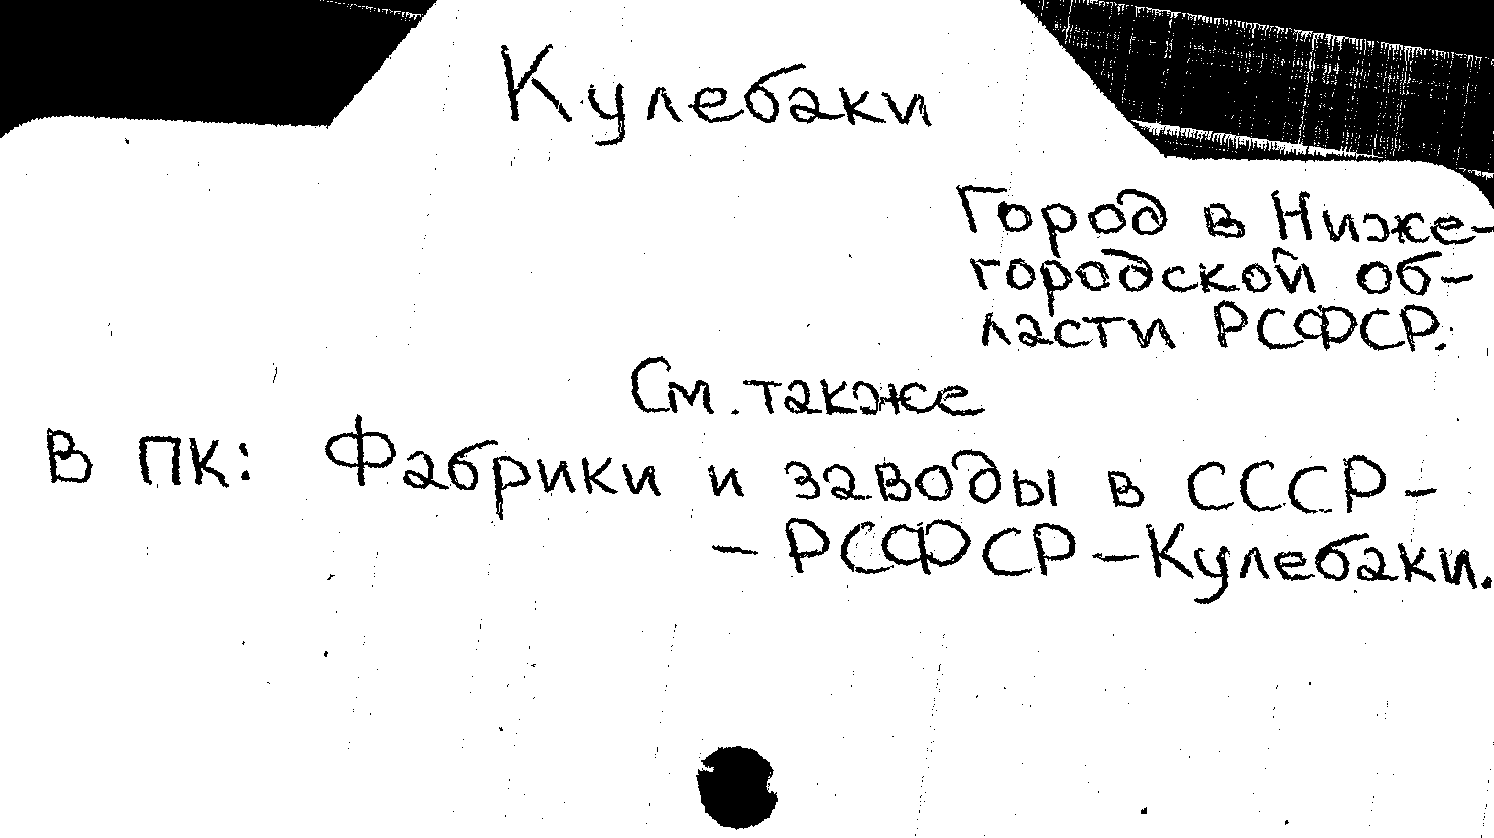 Кулебаки
Город в Ниже-
городской об-
ласти РСФСР.
См. также
В ПК: Фабрики и заводы в СССР -
- РСФСР - Кулебаки.